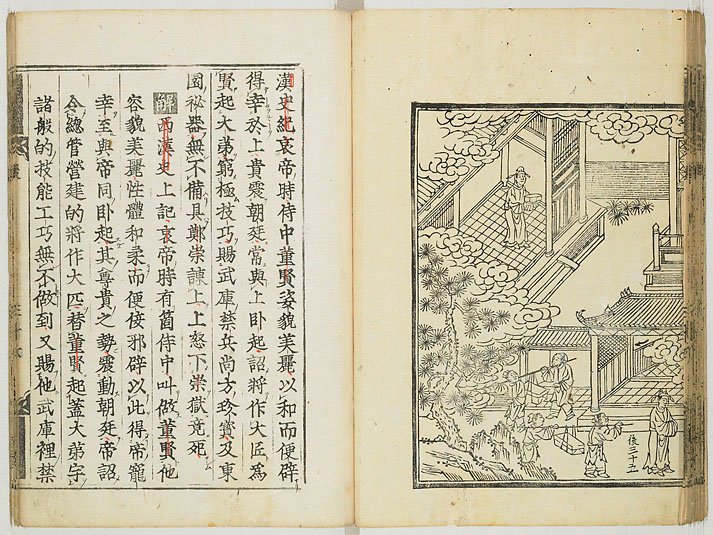 後三十五
漢史紀哀帝時侍中董賢姿貌美麗以和而便辟
得幸於上貴震朝廷常與上卧起詔將作大匠為
賢起大第窮極技巧賜武庫禁兵尚方珍寶及東
園秘器無不備具鄭崇諫上上怒下崇獄竟死
解西漢史上記哀帝時有箇侍中叫做董賢他
容貌美麗性體和柔而便佞邪辟以此得帝寵
幸至與帝同卧起其尊貴之勢震動朝廷帝詔
令總管營建的將作大匠替董賢起蓋大第宇
諸般的技能工巧無不做到又賜他武庫裡禁